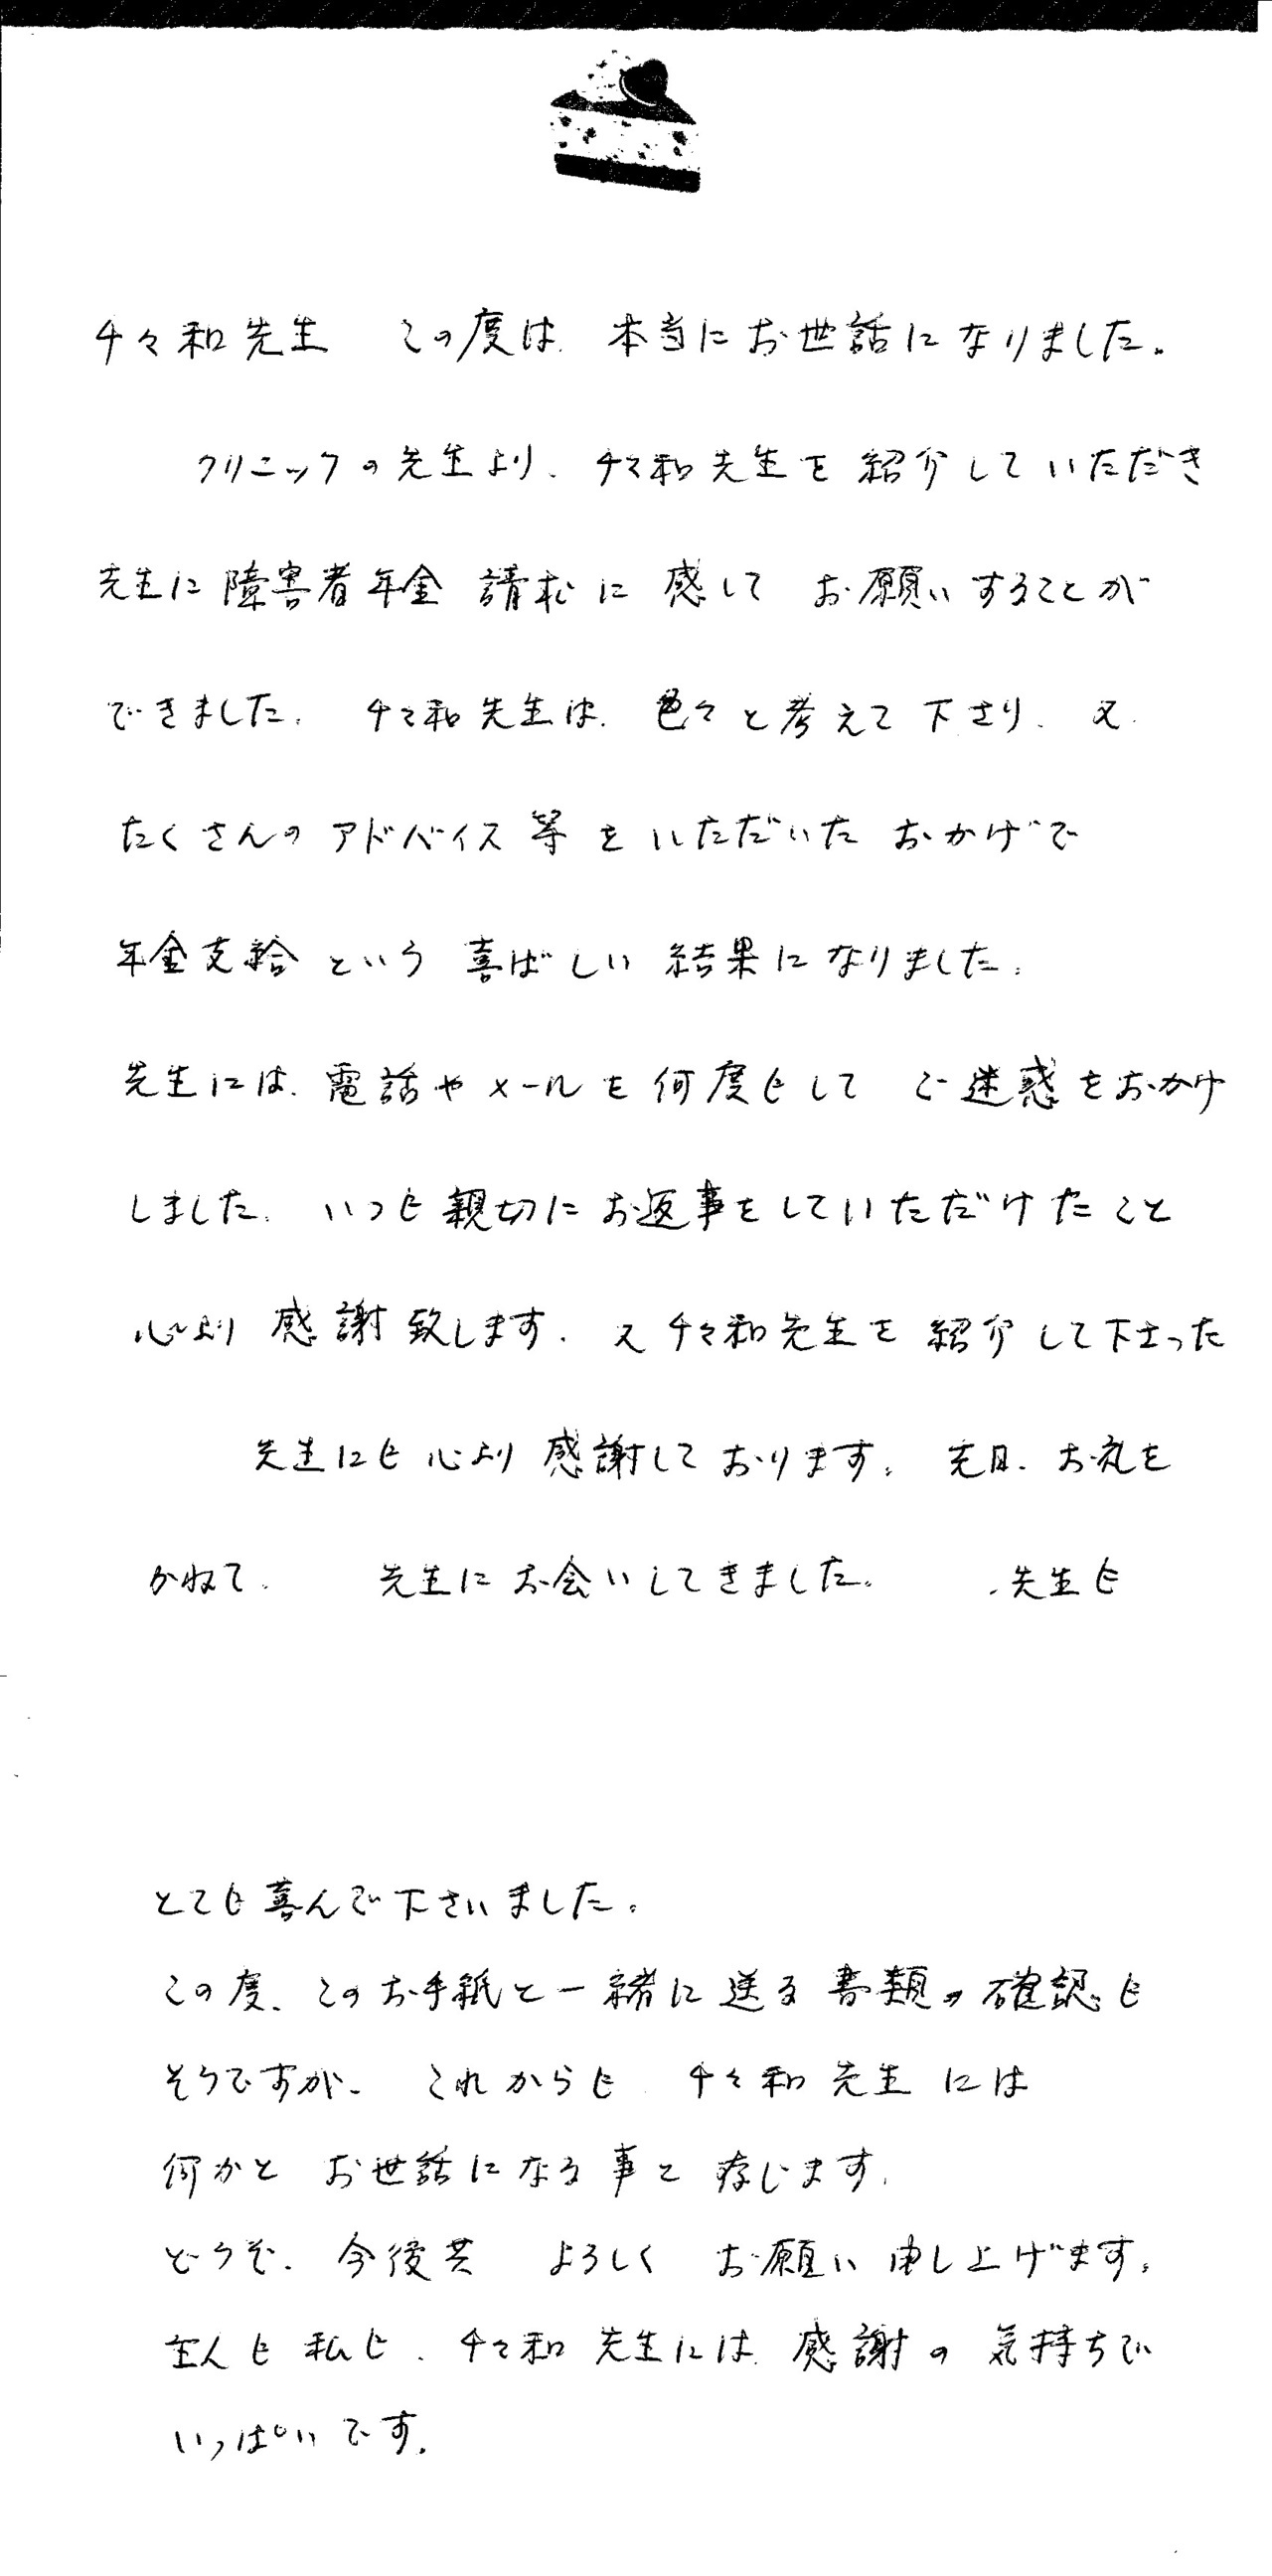 千々和先生　この度は、本当にお世話になりました。
クリニックの先生より、千々和先生を紹介していただき
先生に障害者年金請求に感して お願いすることが
できました。千々和先生は、色々と考えて下さり、又、
たくさんのアドバイス等をいただいた おかげで
年金支給という 喜ばしい結果になりました。
先生には、電話やメールを何度もして ご迷惑をおかけ
しました。いつも親切にお返事をしていただけたこと
心より感謝致します。又 千々和先生を紹介して下さった
先生にも心より感謝しております。先日、お礼を
かねて、　先生にお会いしてきました。　先生も
とても喜んで下さいました。
この度、このお手紙と一緒に送る書類の確認も
そうですが、これからも、千々和先生には
何かと お世話になる事と 存じます。
どうぞ、今後共　よろしく　お願い申し上げます。
主人も私も、千々和先生には、感謝の気持ちで
いっぱいです。